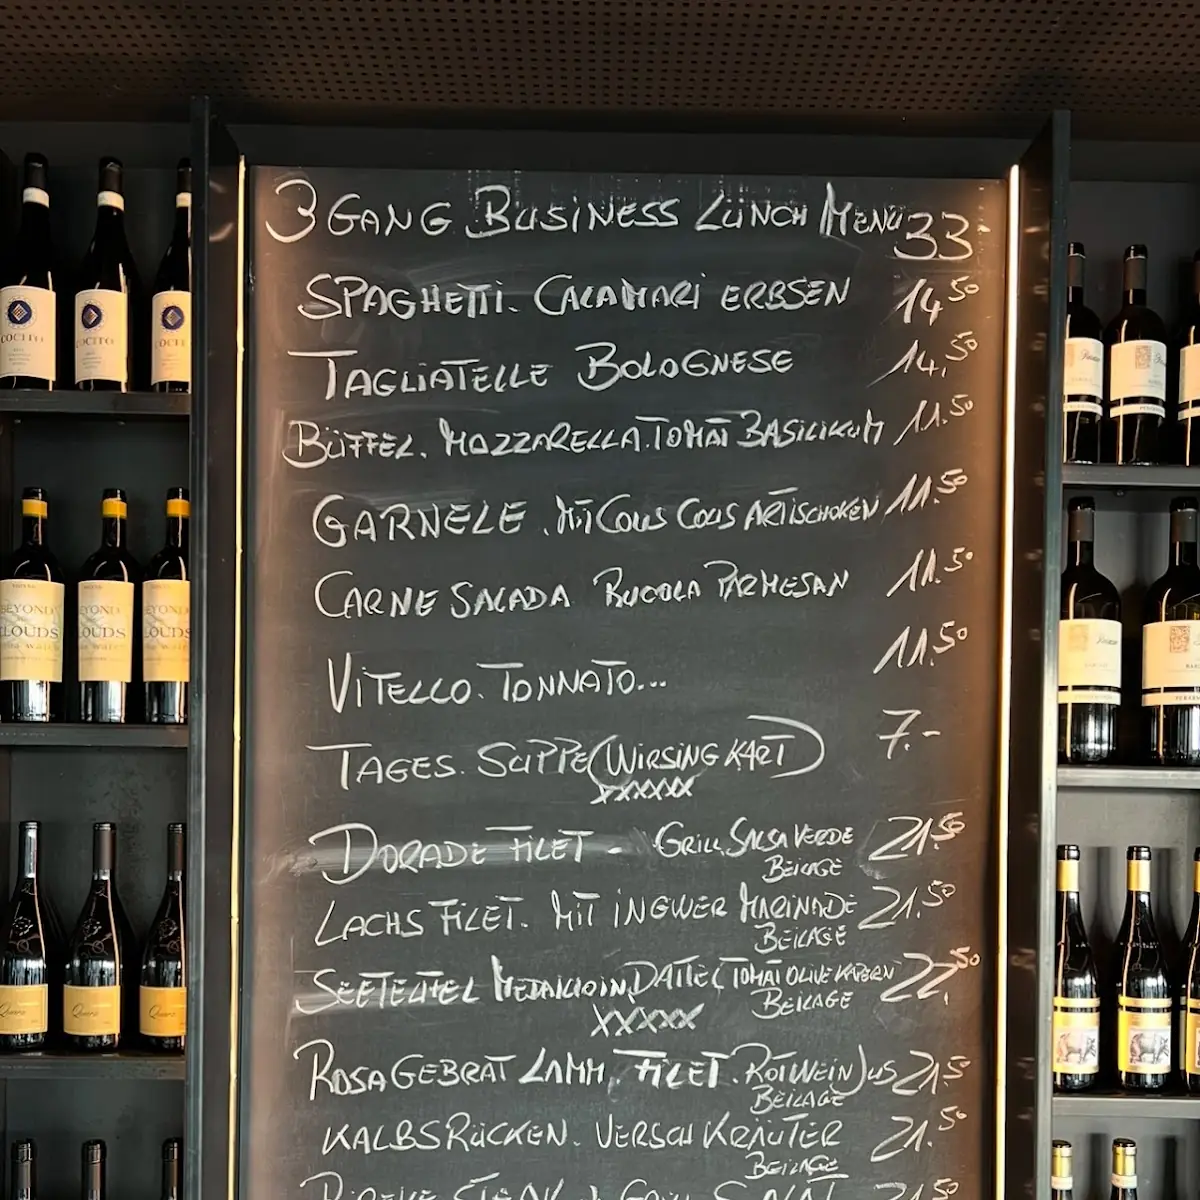 3 GANG BUSINESS LUNCH MENÜ 33.-
SPAGHETTI. CALAMARI ERBSEN 14,50
TAGLIATELLE BOLOGNESE 14,50
BÜFFEL. MOZZARELLA. TOMAT BASILIKUM 11.50
GARNELE. MIT COUS COUS ARTISCHOKEN 11.50
CARNE SALADA RUCOLA PARMESAN 11.50
VITELLO. TONNATO... 11.50
TAGES. SUPPE (WIRSING KART) 7.-
XXXXXX
DORADE FILET - GRILL SALSA VERDE 21.50
BEILAGE
LACHS FILET. MIT INGWER MARINADE 21.50
BEILAGE
SEETEUFEL MEDAILLION, DATTEL TOMAT OLIVE KAPERN 22,50
BEILAGE
XXXXX
ROSA GEBRAT LAMM. FILET. ROTWEIN JUS 21.50
BEILAGE
KALBSRÜCKEN. VERSCH KRÄUTER 21.50
BEILAGE
21.50
COCITO
COCITO
COCITO
BEYOND
CLOUDS
BEYOND
CLOUDS
BEYOND
CLOUDS